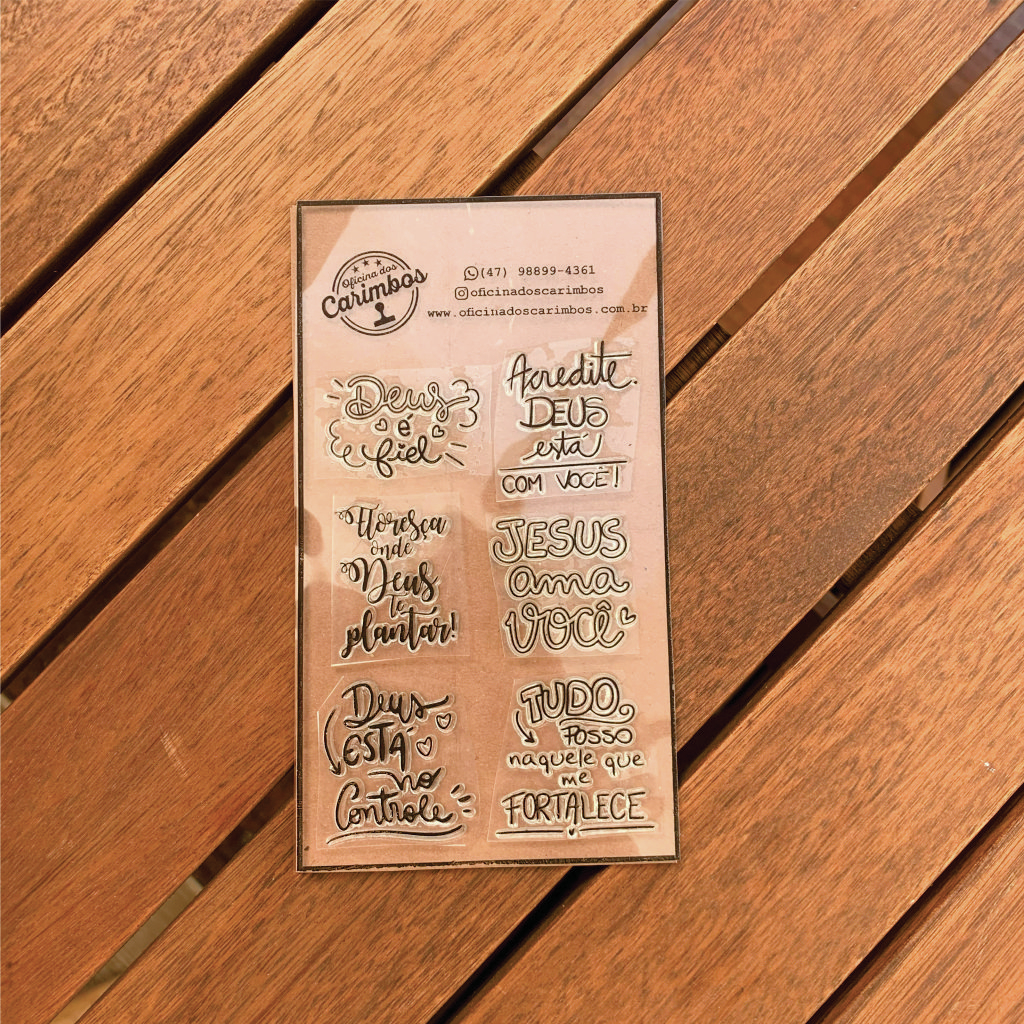 Oficina dos
Carimbos
(47) 98899-4361
oficinadoscarimbos
www.oficinadoscarimbos.com.br
Deus
é
fiel
Acredite.
DEUS
está
COM VOCÊ!
Floresça
onde
Deus
te
plantar!
JESUS
ama
VOCÊ
Deus
ESTÁ
no
Controle
TUDO
POSSO
naquele que
me
FORTALECE